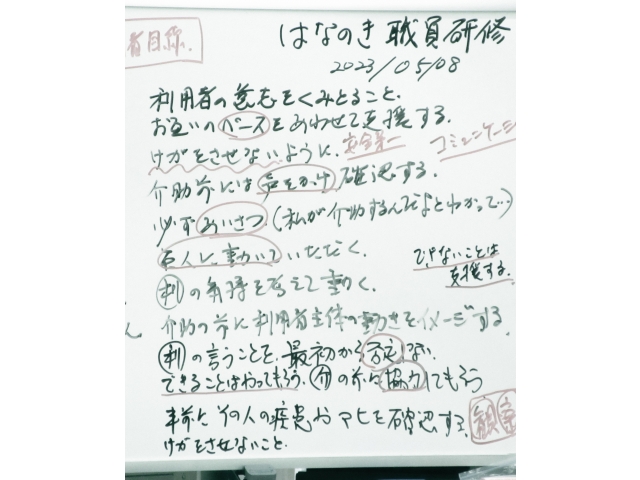 はなのき 職員研修
2023/05/08
者目線.
利用者の意志をくみとること.
お互いのペースをあわせて支援する.
けがをさせないように. 安全第一
コミュニケーシ
介助前には声をかけ確認する.
必ずあいさつ (私が介助するんだよとわかって…)
に動いていただく.
できないことは
支援する.
利の気持を考えて動く.
介助の前に利用者主体の動きをイメージする.
利の言うことを、最初から否定しない.
できることはやってもらう. 介の前に協力してもらう
事前にその人の疾患やマヒを確認する. 観察
けがをさせないこと.